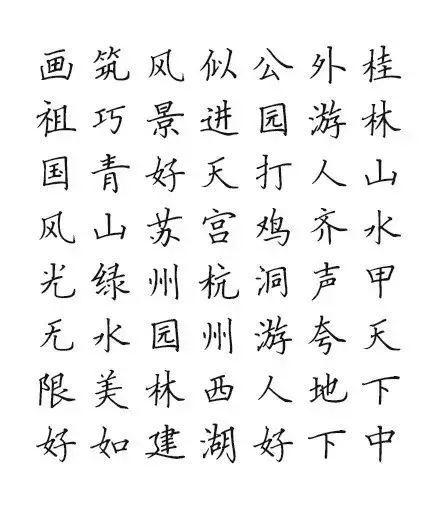 桂林山水甲天下中
外游人齐声夸地下
公园打鸡洞游人好
似进天宫杭州西湖
风景好苏州园林建
筑巧青山绿水美如
画祖国风光无限好